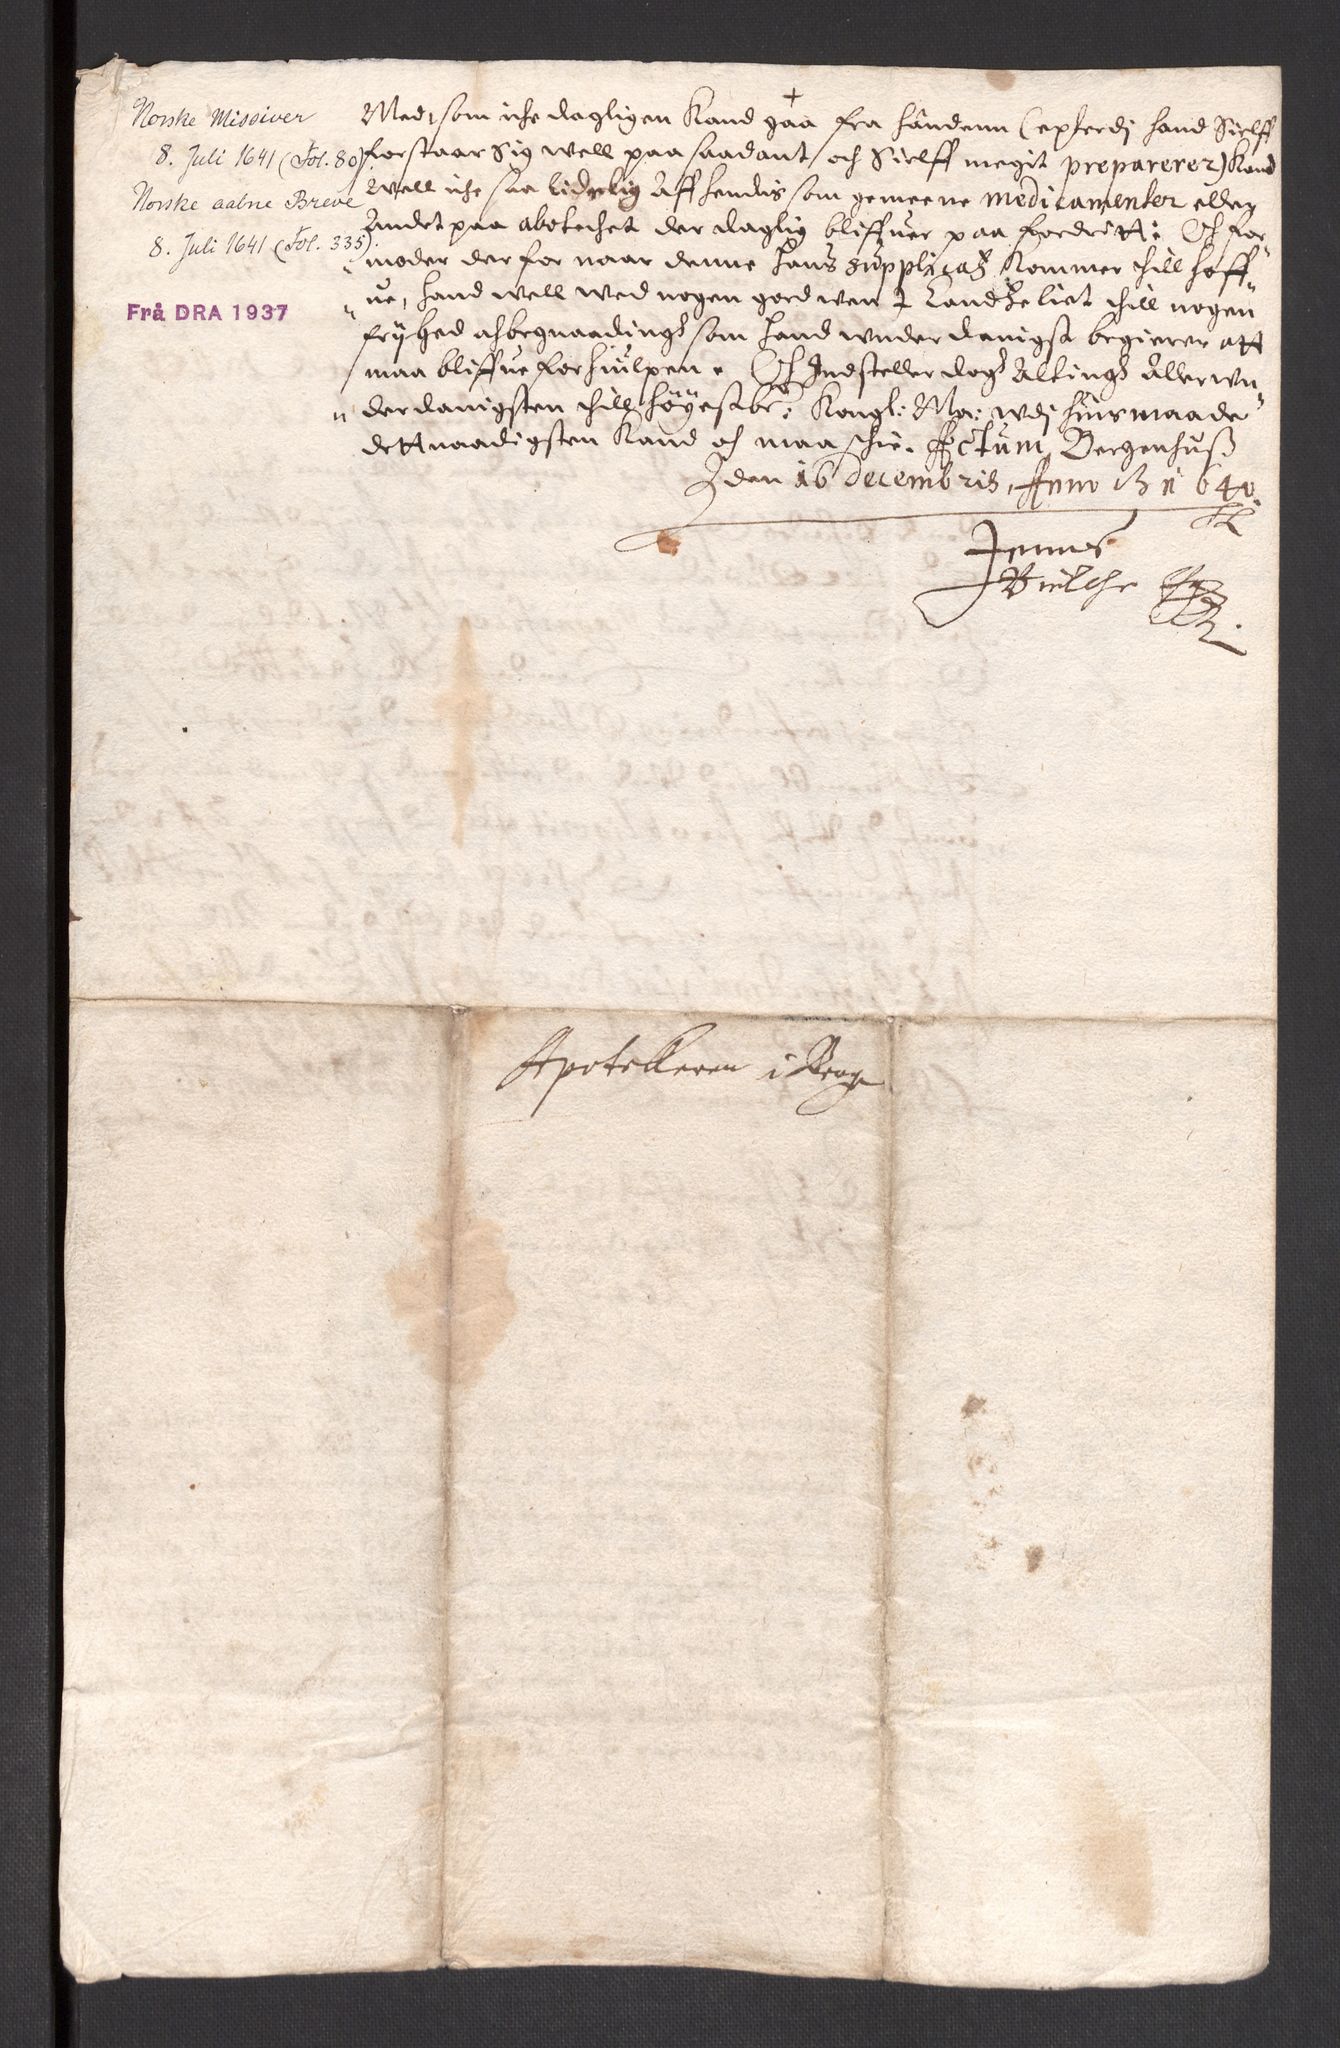 Norske Missiver
8. Juli 1641 (Fol. 80).
Norske aabne Breve
8. Juli 1641 (Fol. 335).
Frå DRA 1937
+
Med, som iche dagligen Kand gaa fra handenn (epterdj hand Sielff
forstaar Sig well paa saadant, och Sielff megit preparerer) Kand
well iche saa liderlig Affhendis som gemeene medicamenter eller
Andet paa abotechet der daglig bliffuer paa fordritt: Och for-
moder der for naar denne hans supplicatz Kommer thill hoff-
ue, hand well wed nogen gord wen I Landhe liet thill nogen
frÿhed och begnaading som hand wnderdanigst begierer att
maa bliffue forhiulpen. Och Indsteller dog Alting Allerwn
derdanigsten thill höÿestbe: Kongl: Ma: wdj huis maade
dett naadigsten Kand och maa schie. Actum Bergenhuß
den 16 Decembris, Anno 1640.
Jenns
Bielche
Apotekeren i Berge